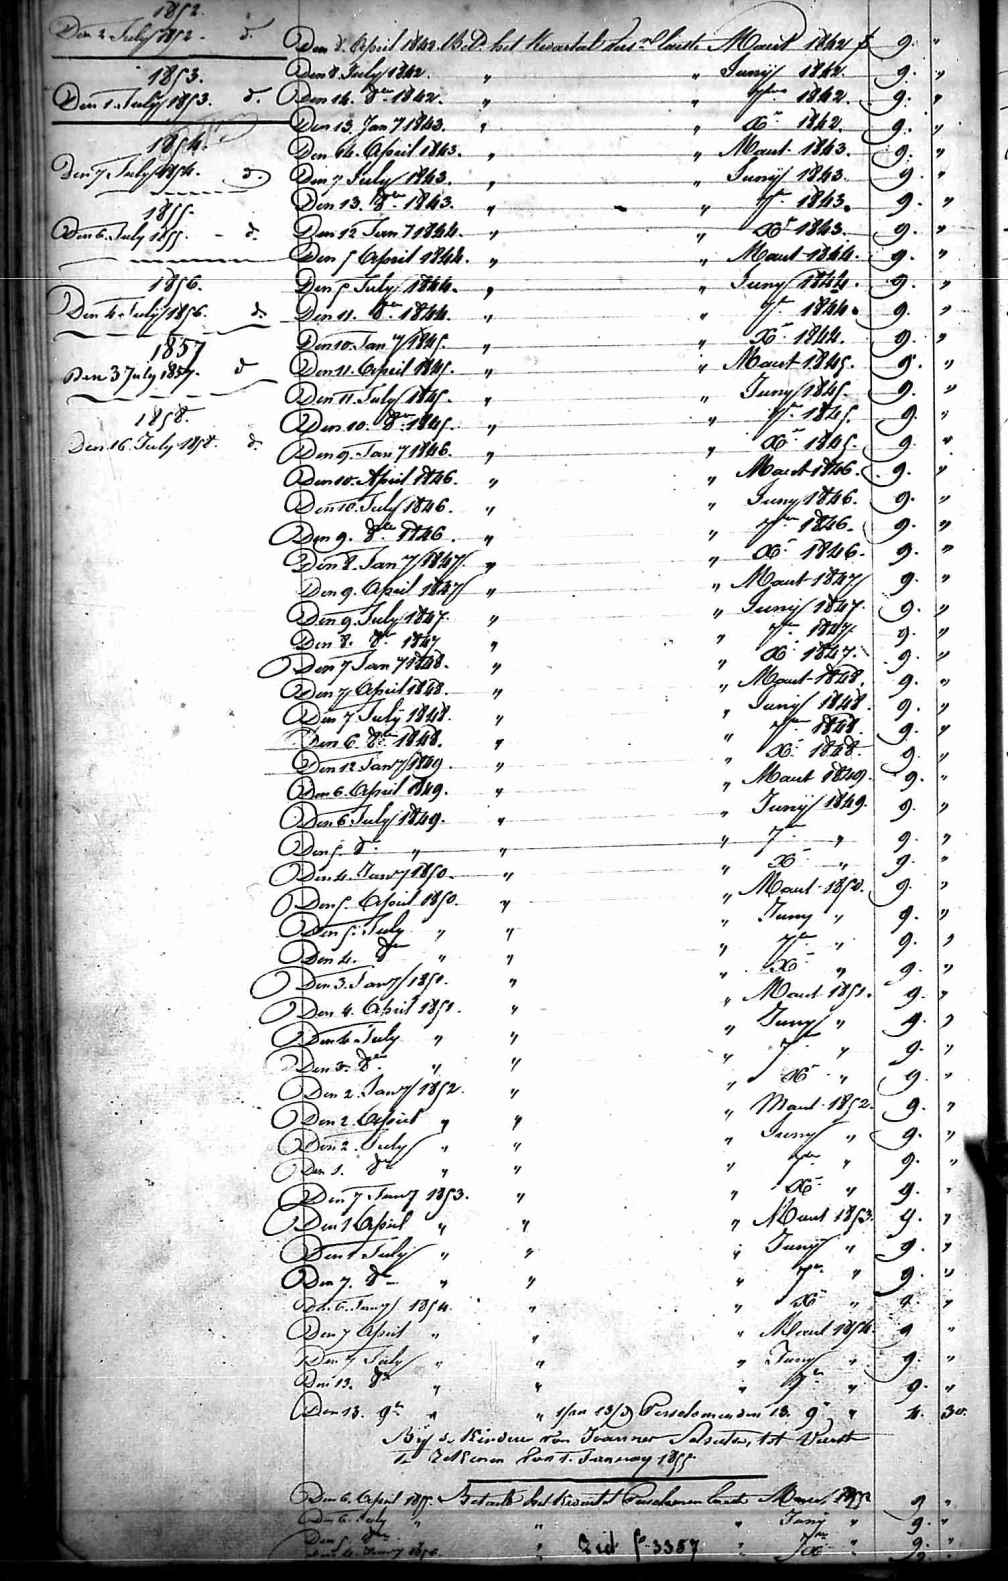 1852.
Den 2 July 1852. d.
1853.
Den 1. July 1853. d.
1854.
Den 7 July 1854. d.
1855.
Den 6. July 1855. - d.
1856.
Den 4 July 1856. d.
1857
Den 3 July 1857. d
1858.
Den 16. July 1858. d.
Den 8. April 1842. Bet. het Kwartaal laatste Maart 1842 f 9. "
Den 8 July 1842. " " Junij 1842. 9. "
Den 14. 8er 1842. " " 7er 1842. 9. "
Den 13. Jany 1843. " " Xr 1842. 9. "
Den 14. April 1843. " " Maart 1843. 9. "
Den 7 July 1843. " " Junij 1843. 9. "
Den 13. 8er 1843. " " 7r 1843. 9. "
Den 12 Jany 1844. " " Xr 1843. 9. "
Den 5 April 1844. " " Maart 1844. 9. "
Den 5 July 1844. " " Juny 1844. 9. "
Den 11. 8er 1844. " " 7r 1844. 9. "
Den 10. Jany 1845. " " Xr 1844. 9. "
Den 11. April 1845. " " Maart 1845. 9. "
Den 11. July 1845. " " Juny 1845. 9. "
Den 10. 8er 1845. " " 7r 1845. 9. "
Den 9. Jany 1846. " " Xr 1845. 9. "
Den 10. April 1846. " " Maart 1846. 9. "
Den 10. July 1846. " " Juny 1846. 9. "
Den 9. 8er 1846. " " 7er 1846. 9. "
Den 8. Jany 1847. " " Xr 1846. 9. "
Den 9. April 1847 " " Maart 1847 9. "
Den 9. July 1847. " " Junij 1847. 9. "
Den 8. 8r 1847 " " 7r 1847. 9. "
Den 7 Jany 1848. " " Xr 1847. 9. "
Den 7 April 1848. " " Maart 1848. 9. "
Den 7. July 1848. " " Juny 1848. 9. "
Den 6. 8er 1848. " " 7er 1848. 9. "
Den 12 Jany 1849. " " Xr 1848 9. "
Den 6. April 1849. " " Maart 1849. 9. "
Den 6 July 1849. " " Junij 1849. 9. "
Den 5. 8r " " " 7r " 9. "
Den 4. Jany 1850. " " Xr " 9. "
Den 5. April 1850. " " Maart 1850. 9. "
Den 5. July " " " Juny " 9. "
Den 4. 8er " " " 7er " 9. "
Den 3. Jany 1851. " " Xr " 9. "
Den 4. April 1851. " " Maart 1851. 9. "
Den July " " " Juny " 9. "
Den 3. 8er " " " 7r " 9. "
Den 2. Jany 1852. " " Xr " 9. "
Den 2. April " " " Maart 1852. 9. "
Den 2. July " " " Juny " 9. "
Den 1. 8er " " " 7er " 9. "
Den 7 Jany 1853. " " Xr " 9. "
Den 1 April " " " Maart 1853. 9. "
Den 1 July " " " Juny " 9. "
Den 7. 8er " " " 7er " 9. "
Den 6. Jany 1854. " " Xr " 9. "
Den 7 April " " " Maart 1854. 9 "
Den 7 July " " " Juny " 9. "
Den 13. 8er " " " 7er " 9. "
Den 13. 9er " " 13. 9r " 4. 30.
Bij de Kinderen van Joannes tot
Te Rekenen Van 1. January 1855.
Den 6. April 1855. Betaald het Kwartaal laatste Maart 1855 9 "
Den 6. July " " " Juny " 9. "
Den 5. 8er " " 7er " 9. "
Jany 1856. " Xr " 9. "
Zid fo 3357